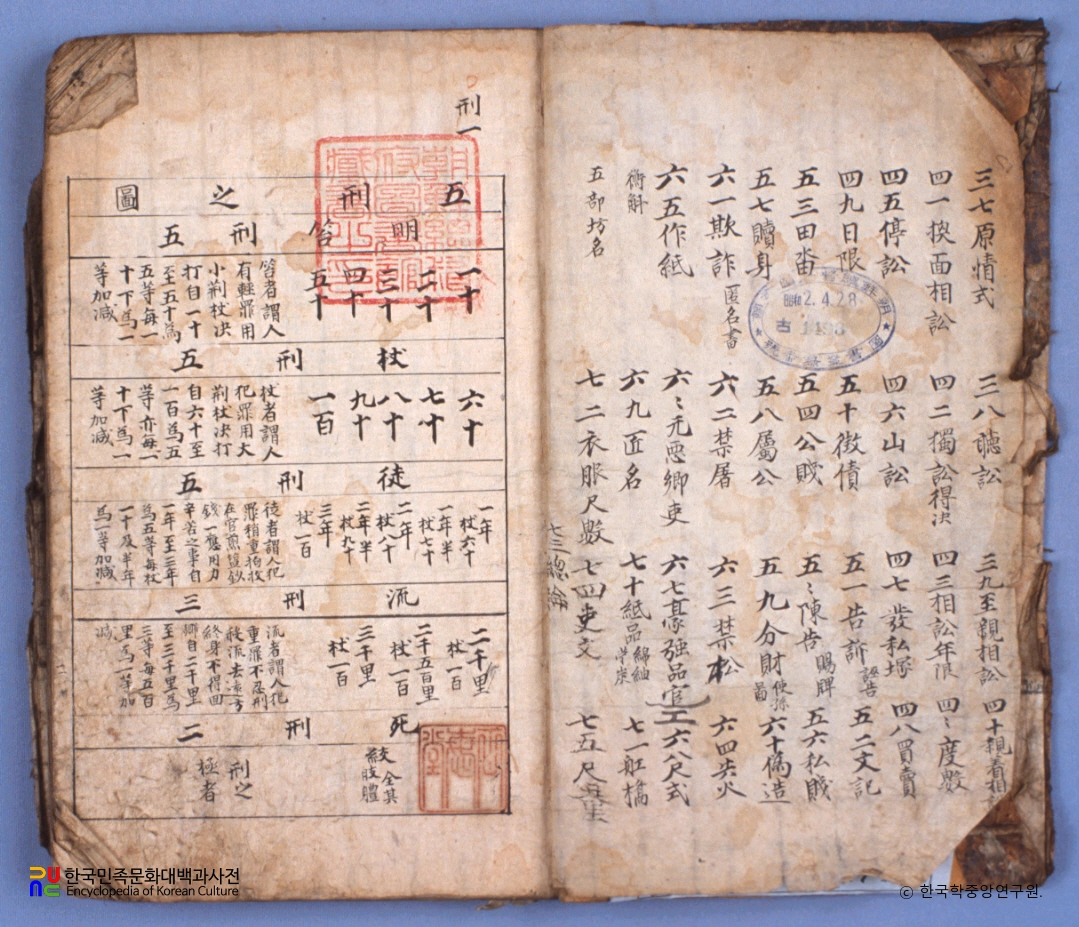 三七原情式 三八聽訟 三九至親相訟 四十親着相
四一換面相訟 四二獨訟得決 四三相訟年限 四〻度數
四五停訟 四六山訟 四七發私塚 四八買賣
四九日限 五十徵債 五一告訴 誣告 五二文記
五三田畓 五四公賤 五〻陳告 賜牌 五六私賤
五七贖身 五八屬公 五九分財 六十僞造
六一欺詐 匿名書 六二禁屠 六三禁松 六四失火
六五作紙 六〻元惡鄕吏 六七豪强品官 六八尺式
斛 六九匠名 七十紙品 綿紬 七一舡
五部坊名 七二衣服尺數 七四吏文 七五尺
七三總論
刑一
五刑之圖
明笞刑五
一十
二十
三十
四十
五十
笞者謂人
有輕罪用
小荊杖決
打自一十
至五十爲
五等每一
十下爲一
等加減
杖刑五
六十
七十
八十
九十
一百
杖者謂人
犯罪用大
荊杖決打
自六十至
一百爲五
等亦每一
十下爲一
等加減
徒刑五
一年 杖六十
一年半 杖七十
二年 杖八十
二年半 杖九十
三年 杖一百
徒者謂人犯
罪稍重拘收
在官煎鹽炒
鐵一應用力
辛苦之事自
一年至三年
爲五等每杖
一十及半年
爲一等加減
流刑三
二千里 杖一百
二千五百里 杖一百
三千里 杖一百
流者謂人犯
重罪不忍刑
殺流去遠方
終身不得回
鄕自二千里
至三千里爲
三等每五百
里爲一等加
減
死刑二
絞 全其肢體
刑之極者
2.4.28
古
한국민족문화대백과사전
Encyclopedia of Korean Culture
© 한국학중앙연구원.